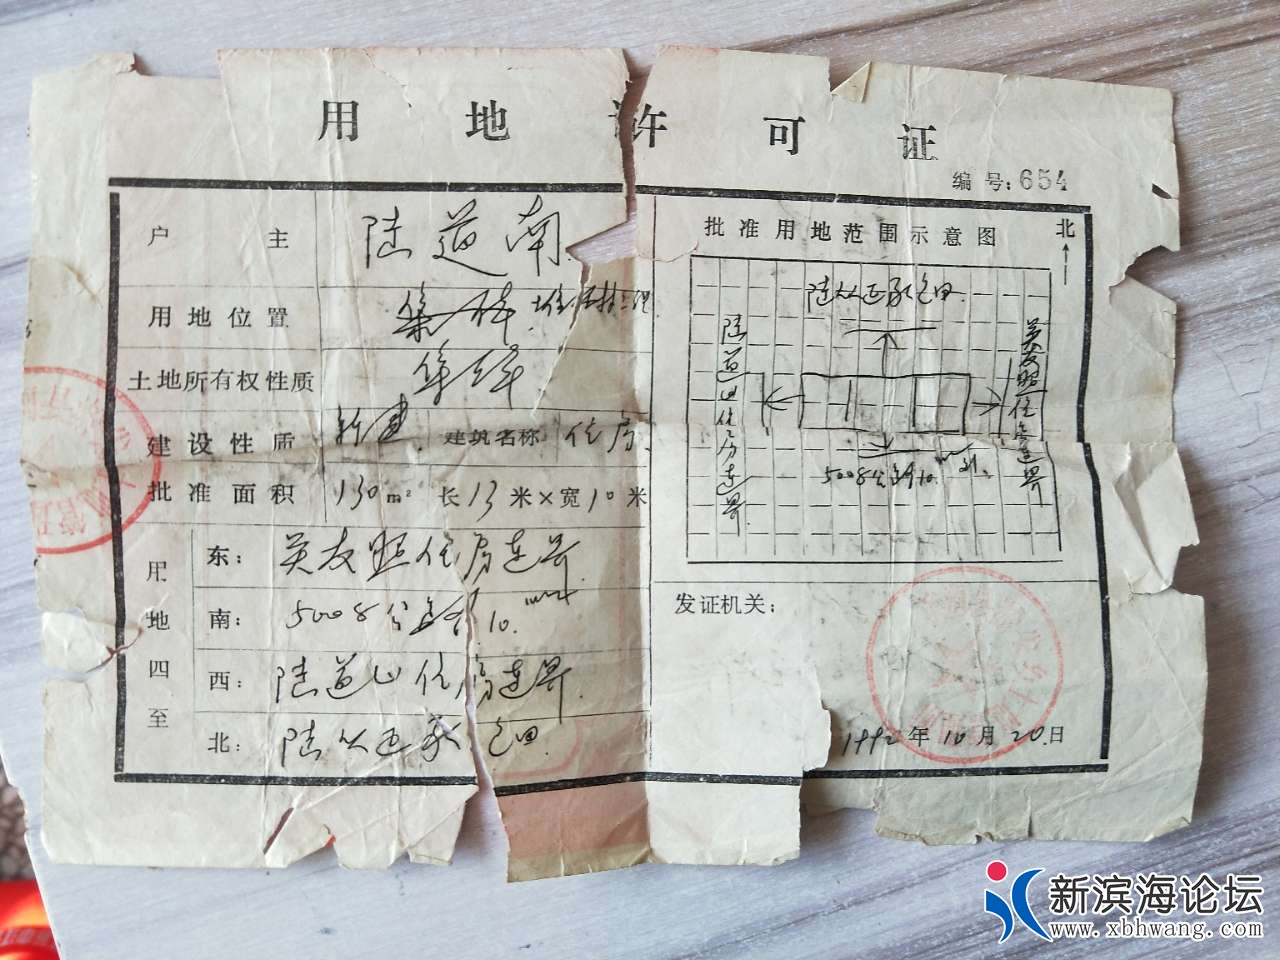 用地许可证
编号:654
户主 陆道南
用地位置
土地所有权性质 集体
建设性质 新建 建筑名称 住房
批准面积 130m² 长13米×宽10米
用地四至
东: 吴友照住房连界
南: 5008公路 10
西: 陆道山住房连界
北: 陆从正承包田
批准用地范围示意图
北
陆从正承包田
陆道山住房连界
吴友照住房连界
5008公路 10
发证机关:
1992年10月20日
新滨海论坛
www.xbhwang.com